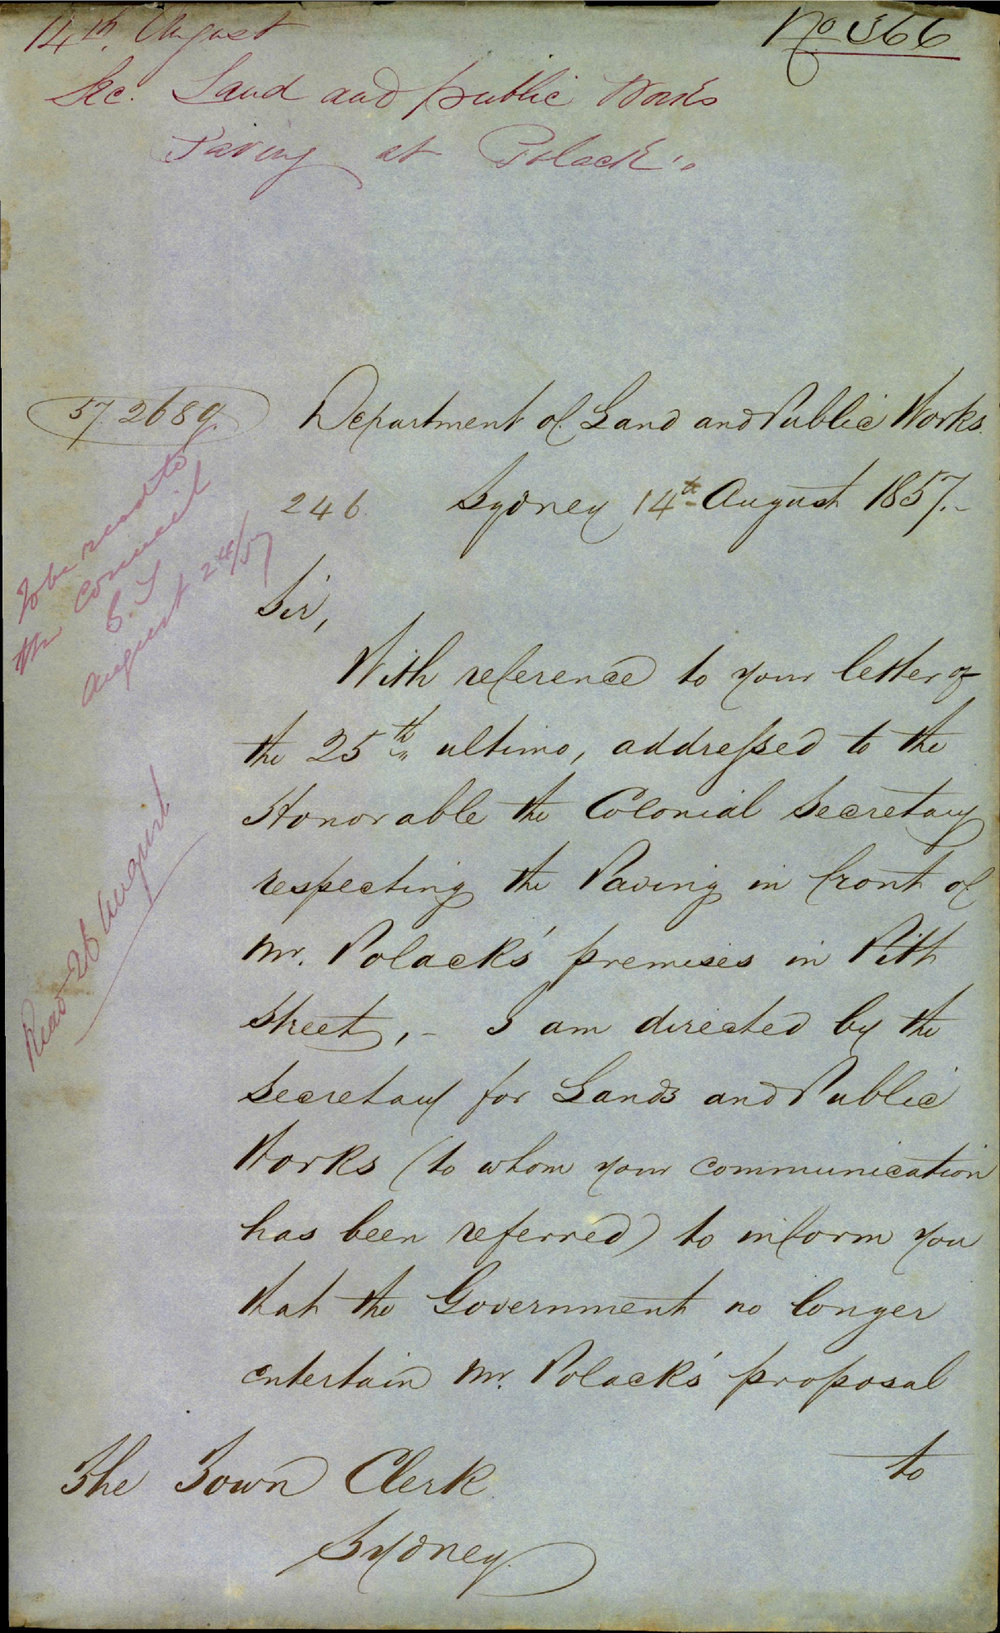 14th August
No 366
Sec. Land and public Works
Paving at Polack's
57 2689.
Department of Land and Public Works
246. Sydney 14th August 1857.-
To be read to
the Council
August 24/57
Sir,
With reference to your letter of
the 25th ultimo, addressed to the
Honorable the Colonial Secretary
respecting the Paving in front of
Mr. Polack's premises in Pitt
Street, - I am directed by the
Secretary for Lands and Public
Works (to whom your communication
has been referred) to inform you
that the Government no longer
entertain Mr. Polack's proposal
to
Read 26 August
The Town Clerk
Sydney.